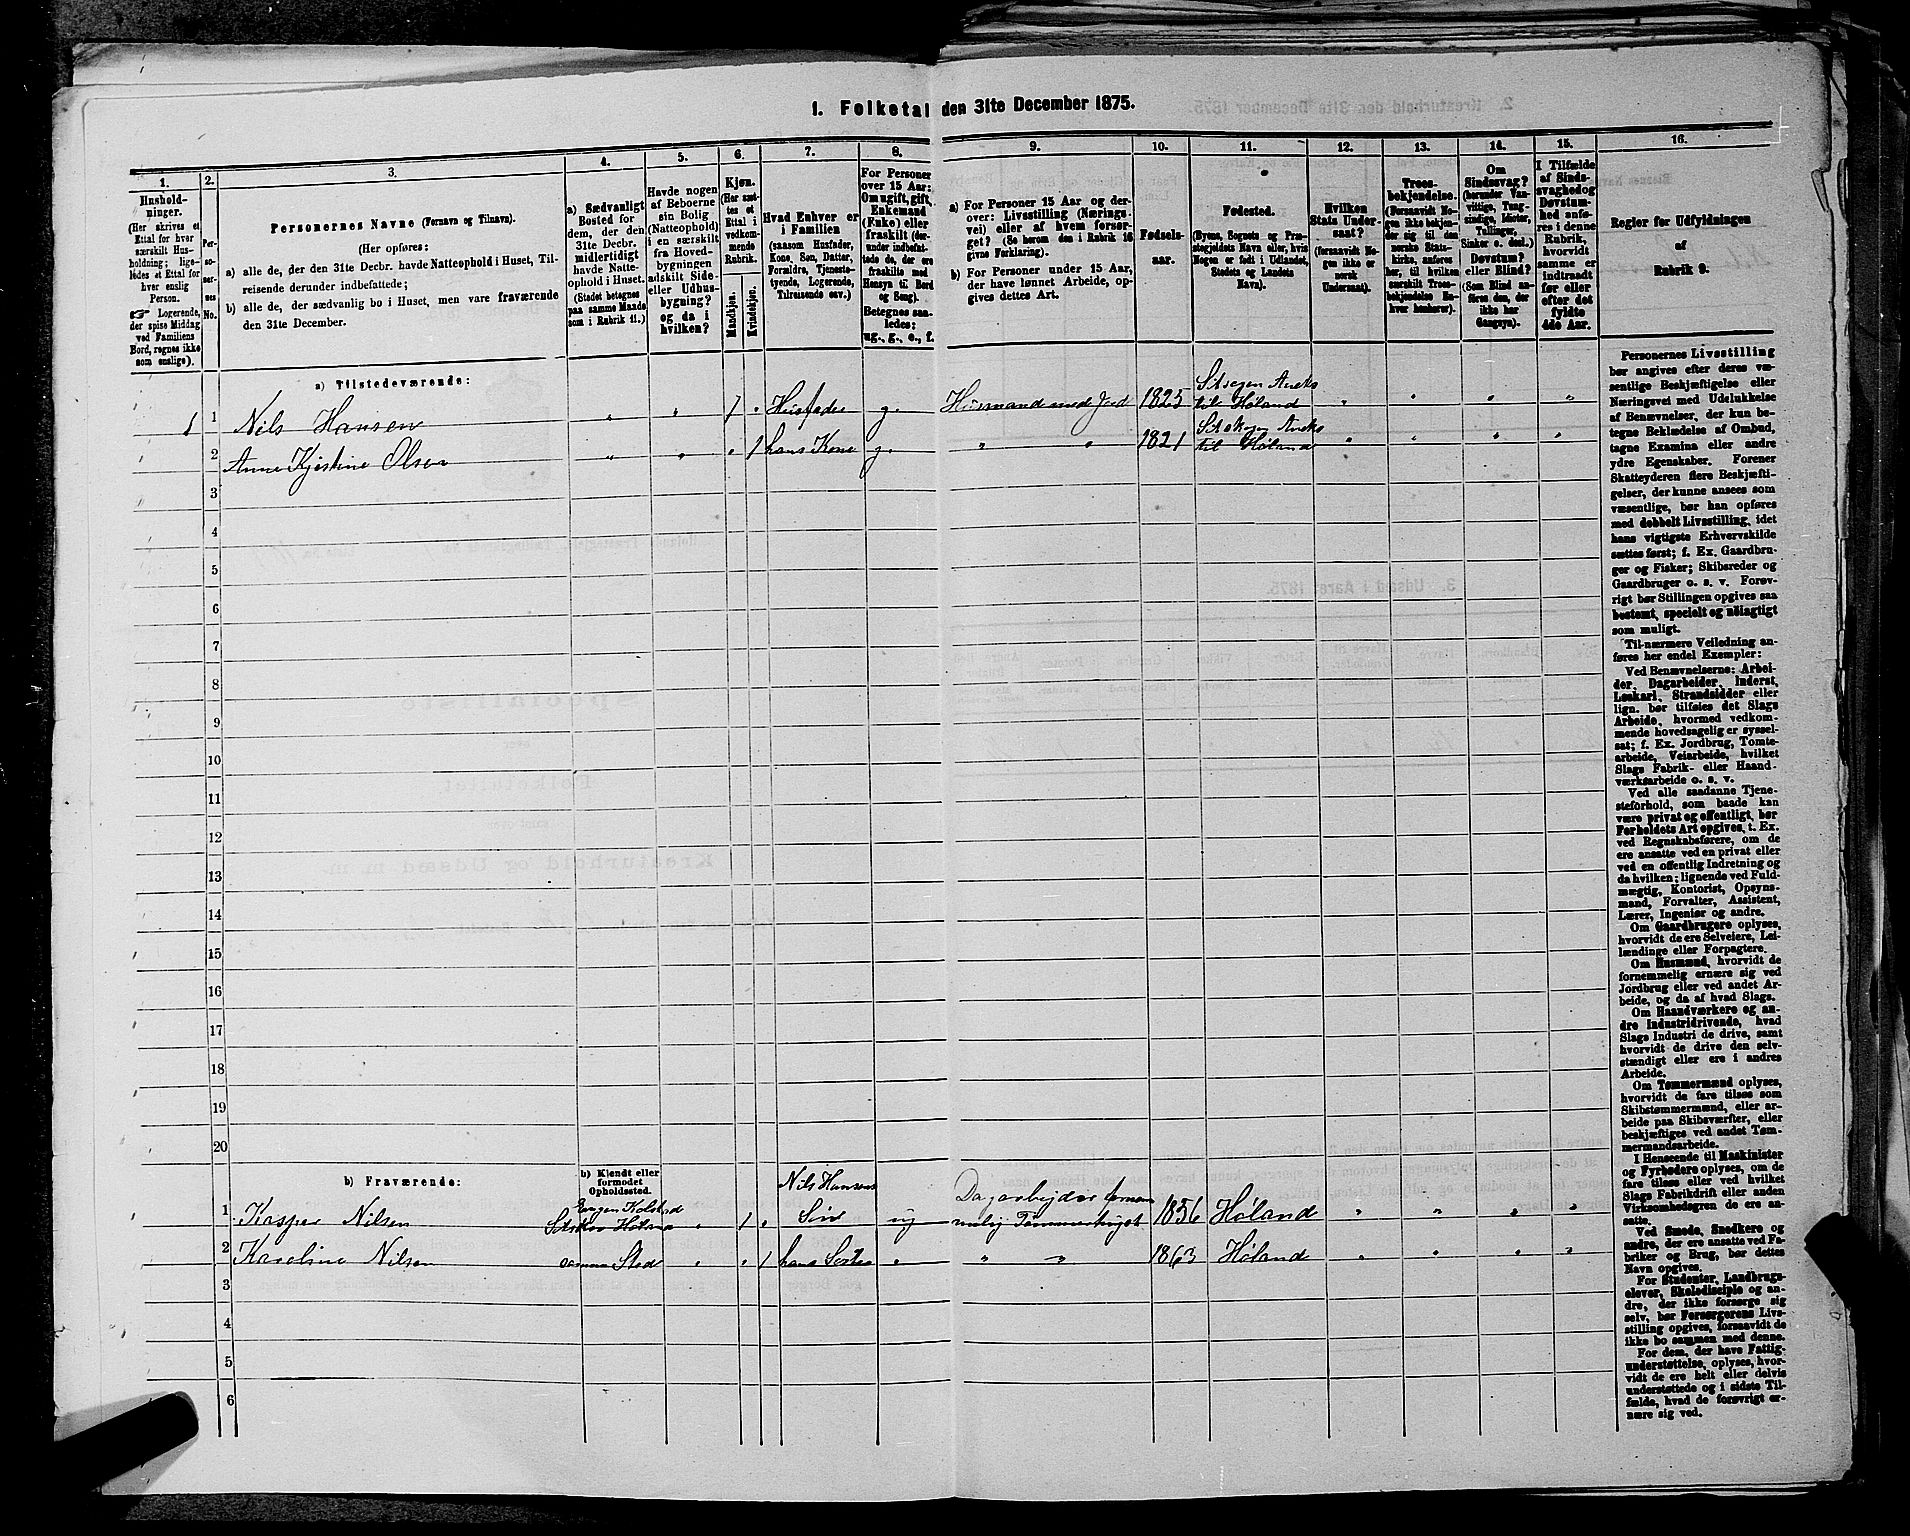 1. Folketal den 31te December 1875.
1. 2. 3. 4. 5. 6. 7. 8. 9. 10. 11. 12. 13. 14. 15. 16.
Husholdninger.
(Her skrives et
Ettal for hver
særskilt Husholdning; ligeledes
et Ettal for
hver enslig
Person.
☞ Logerende,
der spise Middag
ved Familiens
Bord, regnes ikke
som enslige).
Personernes No.
Personernes Navne (Fornavn og Tilnavn).
(Her opføres:
a) alle de, der den 31te Decbr. havde Natteophold i Huset, Tilreisende
derunder indbefattede;
b) alle de, der sædvanlig bo i Huset, men vare fraværende
den 31te December.
a) Sædvanligt
Bosted for
dem, der den
31te Decbr.
midlertidigt
havde Natteophold
i Huset.
(Stedet betegnes
paa samme Maade
som i Rubrik 11.)
Havde nogen
af Beboerne
sin Bolig
(Natteophold)
i en særskilt
fra Hovedbygningen
adskilt Side-
eller Udhusbygning?
og da i
hvilken?
Kjøn.
(Her sættes
et
Ettal i
vedkommende
Rubrik.
Mandkjøn.
Kvindekjøn.
Hvad Enhver er
i Familien
(saasom Husfader,
Kone, Søn, Datter,
Forældre, Tjenestetyende,
Logerende,
Tilreisende osv.)
For Personer
over 15 Aar:
Om ugift, gift,
Enkemand
(Enke) eller
fraskilt (derunder
indbefattede
de, der ere
fraskilte med
Hensyn til Bord
og Seng).
Betegnes saaledes:
ug., g., e., f.
a) For Personer 15 Aar og derover:
Livsstilling (Næringsvei)
eller af hvem forsørget?
(Se herom den i Rubrik 16
givne Forklaring).
b) For Personer under 15 Aar,
der have lønnet Arbeide, opgives
dettes Art.
Fødselsaar.
Fødested.
(Byens, Sognets og Præstegjeldets
Navn eller, hvis
Nogen er født i Udlandet,
Stedets og Landets
Navn).
Hvilken
Stats Undersaat?
(forsaavidt Nogen
ikke er
norsk
Undersaat).
Troesbekjendelse.
(Forsaavidt Nogen
ikke bekjender
sig til den
norske Statskirke,
anføres
her, til hvilken
særskilt Troesbekjendelse
Enhver
henhører).
Om
Sindssvag?
(herunder Vanvittige,
Tungsindige,
Idioter,
Tullinger,
Sinker o. desl.)
Døvstum?
eller Blind?
(Som Blind anføres
den, der
ikke har
Gangsyn).
I Tilfælde
af Sindssvaghed
og
Døvstumhed
anføres
i denne
Rubrik,
hvorvidt
samme er
indtraadt
før eller
efter det
fyldte
4de Aar.
Regler for Udfyldningen
af
Rubrik 9.
a) Tilstedeværende:
1 1 Nils Hansen " " 1 " Husfader g. Husmand med Jord 1825 til Høland " " " "
2 Anne Kjestine Olsen " " " 1 hans Kone g. " " 1821 til Høland " " " "
3
4
5
6
7
8
9
10
11
12
13
14
15
16
17
18
19
20
b) Fraværende:
b) Kjendt eller
formodet
Opholdssted.
Nils Hansens
1 Kasper Nilsen Høland " 1 " Sön ug Dagarbejder Tømmerhugst 1856 Høland " " " "
2 Karoline Nilsen samme Sted " " 1 hans " " " 1863 Høland " " " "
3
4
5
6
Personernes Livsstilling
bør angives efter deres væsentlige
Beskjæftigelse eller
Næringsvei med Udelukkelse
af Benævnelser, der kun betegne
Beklædelse af Ombud,
tagne Examina eller andre
ydre Egenskaber. Forener
Skatteyderen flere Beskjæftigelser,
der kunne ansees som
væsentlige, bør han opføres
med dobbelt Livsstilling, idet
hans vigtigste Erhvervskilde
sættes først; f. Ex. Gaardbruger
og Fisker; Skibsreder og
Gaardbruger o. s. v. Forøvrigt
bør Stillingen opgives saa
bestemt, specielt og nøiagtigt
som muligt.
Til nærmere Veiledning anføres
her endel Exempler:
Ved Benævnelserne: Arbeider,
Dagarbeider, Inderst,
Løskarl, Strandsidder eller
lign. bør tilføies det Slags
Arbeide, hvormed vedkommende
hovedsagelig er sysselsat;
f. Ex. Jordbrug, Tomtearbeide,
Veiarbeide, hvilket
Slags Fabrik- eller Haandværksarbeide
o. s. v.
Ved alle saadanne Tjenesteforhold,
som baade kan
være privat og offentligt, bør
Forholdets Art opgives, t. Ex.
ved Regnskabsførere, om de
ere ansatte ved en privat eller
ved en offentlig Indretning og
da hvilken; lignende ved Fuldmægtig,
Kontorist, Opsynsmand,
Forvalter, Assistent,
Lærer, Ingeniør og andre.
Om Gaardbrugere oplyses,
hvorvidt de ere Selveiere, Leilændinge
eller Forpagtere.
Om Husmænd, hvorvidt de
fornemmelig ernære sig ved
Jordbrug eller ved andet Arbeide,
og da af hvad Slags.
Om Haandværkere og andre
Industridrivende, hvad
Slags Industri de drive, samt
hvorvidt de drive den selvstændigt
eller ere i andres
Arbeide.
Om Tømmermænd oplyses,
hvorvidt de fare tilsøs som
Skibstømmermænd, eller arbeide
paa Skibsværfter, eller
beskjæftiges ved andet Tømmermandsarbeide.
I Henseende til Maskinister
og Fyrbødere oplyses, om de
fare tilsøs eller ved hvilket
Slags Fabrikdrift eller anden
Virksomhedsgren de ere ansatte.
Ved Smede, Snedkere og
andre, der ere ansatte ved Fabriker
og Brug, bør dettes
Navn opgives.
For Studenter, Landbrugselever,
Skoledisciple og andre,
der ikke forsørge sig
selv, bør Forsørgerens Livsstilling
opgives, forsaavidt de
ikke bo sammen med denne.
For dem, der have Fattigunderstøttelse,
oplyses, hvorvidt
de ere helt eller delvis
understøttede og i sidste Tilfælde,
hvad de forøvrigt ernære
sig ved.